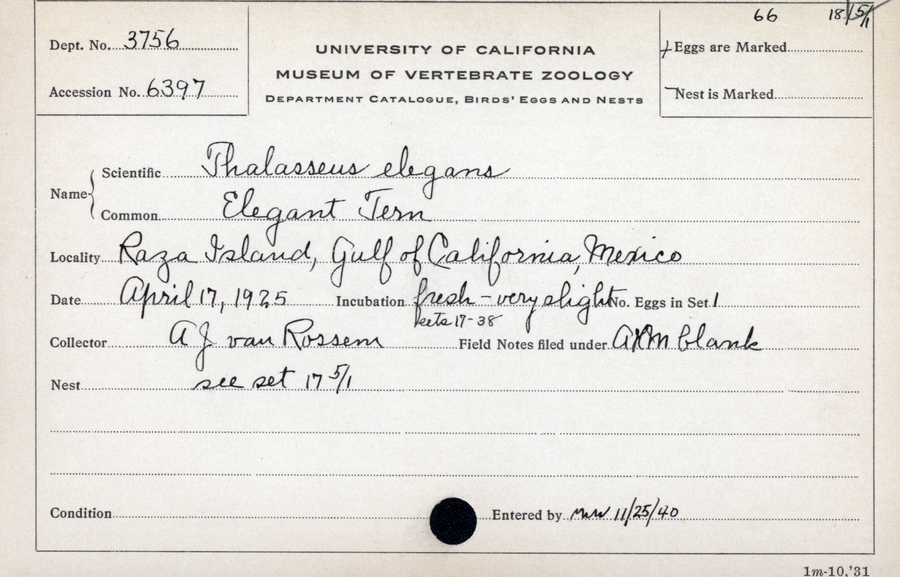 66 18 5/1
Dept. No. 3756
UNIVERSITY OF CALIFORNIA
Eggs are Marked
MUSEUM OF VERTEBRATE ZOOLOGY
Accession No. 6397
DEPARTMENT CATALOGUE, BIRDS' EGGS AND NESTS
Nest is Marked
Name { Scientific Thalasseus elegans
Common Elegant Tern
Locality Raza Island, Gulf of California, Mexico
Date April 17, 1925 Incubation fresh - very slight No. Eggs in Set 1
sets 17-38
Collector A J van Rossem Field Notes filed under blank
Nest see set 17 5/1
Condition Entered by 11/25/40
1m-10,'31